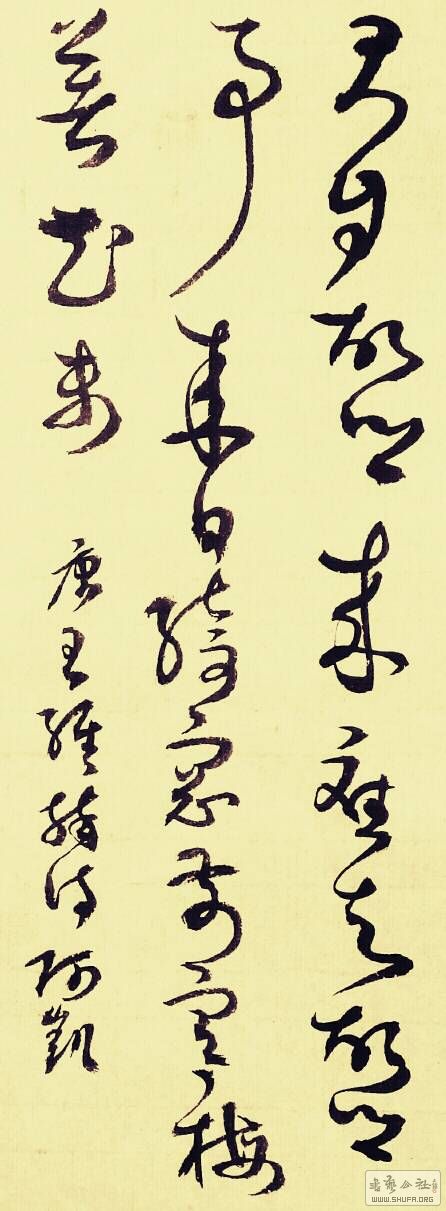 君自故乡来应知故乡
事来日绮窗前寒梅
着花未
唐王维诗 阿凯
书艺公社
WWW.SHUFA.ORG